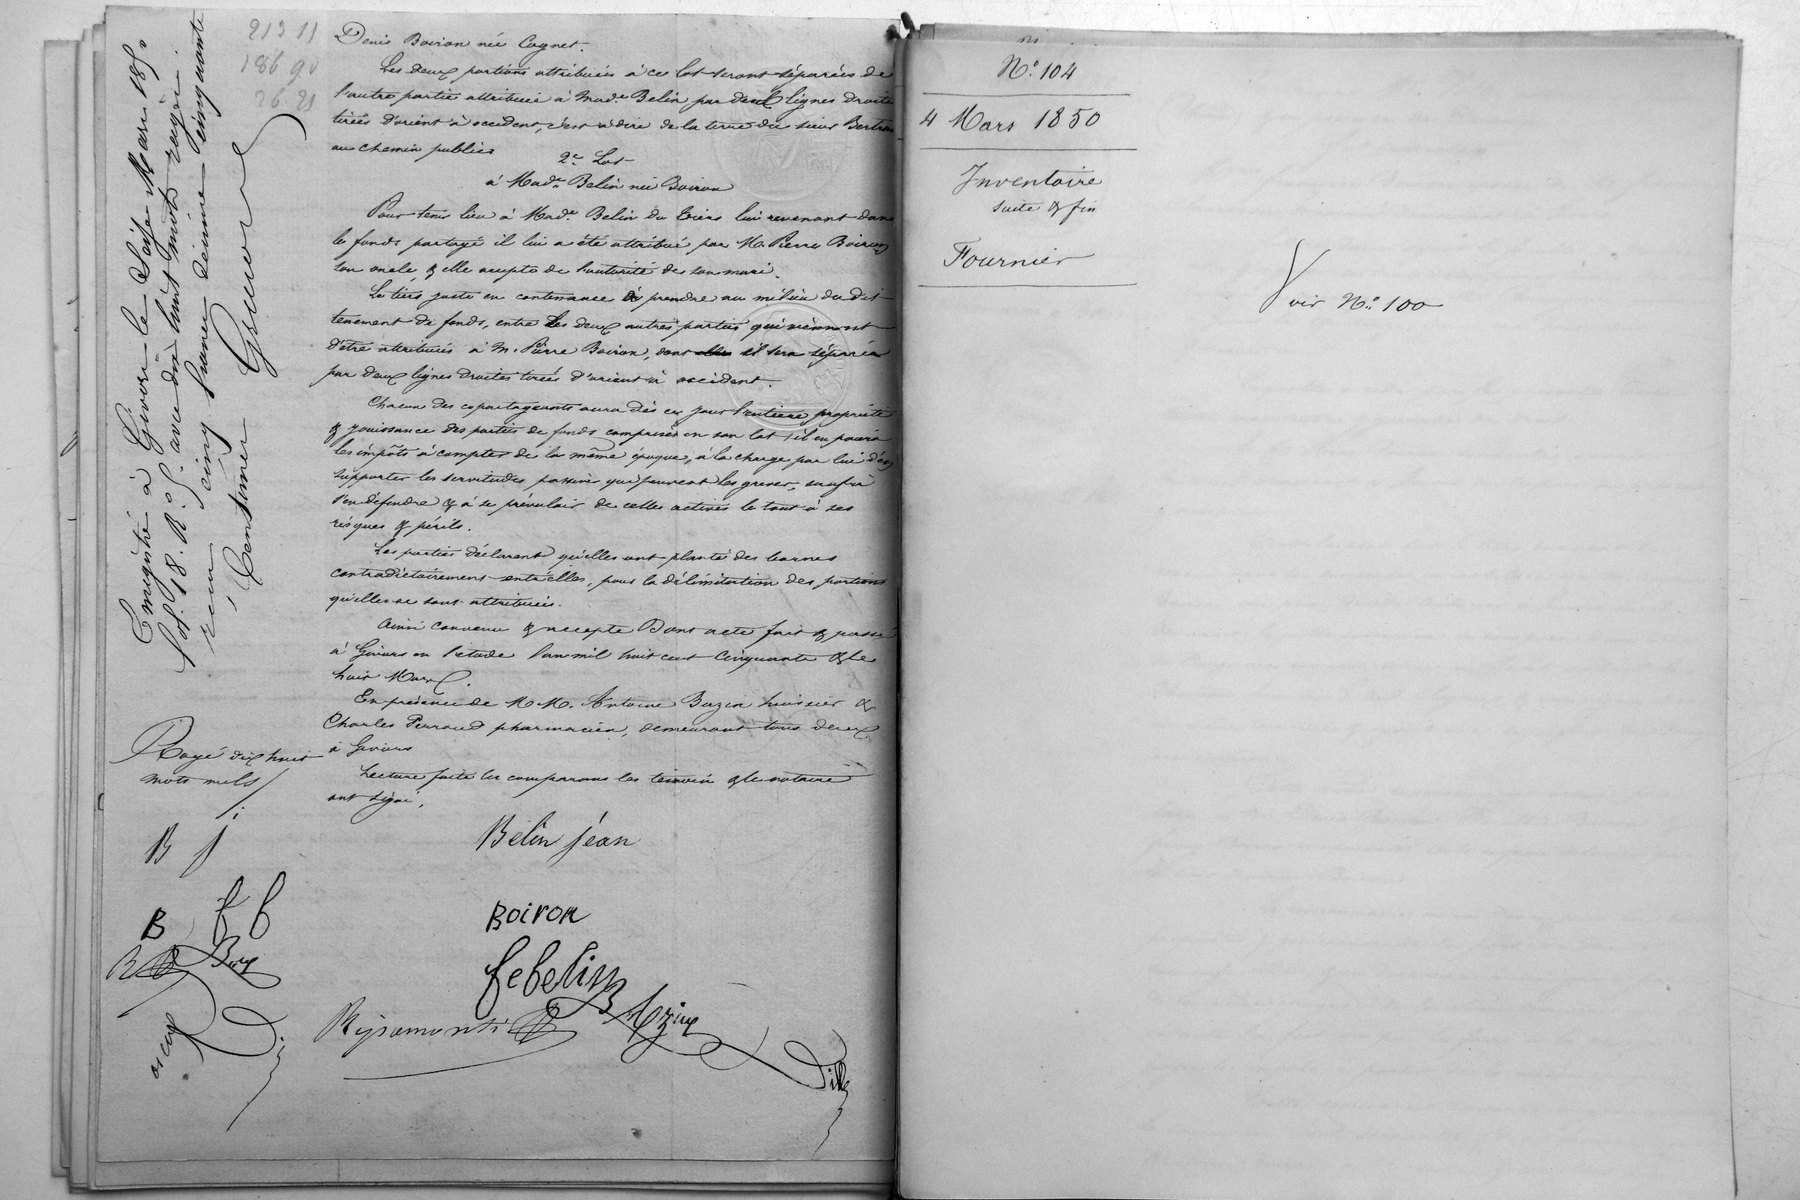 213 11
186 90
26 21
Enregistré à Givors le Seize Mars 1850
fol. 18. R. c. 5. avec dix huit mots rayés
reçu cinq francs décime cinquante
centimes
Denis Boiron née Cognet.
Les deux portions attribuées à ce lot seront séparées de
l'autre partie attribuée à Made Belin par deux lignes droites
tirées d'orient à occident, c'est à dire de la terre du sieur
au chemin public
2e Lot
à Made Belin née Boiron
Pour tenir lieu à Made Belin du tiers lui revenant dans
le fonds partagé il lui a été attribué par M. Pierre Boiron
son oncle, & elle accepte de l'autorité de son mari.
Le tiers juste en contenance à prendre au milieu du dit
tenement de fonds, entre les deux autres parties qui viennent
d'être attribuées à M. Pierre Boiron, dont il sera séparé
par deux lignes droites tirées d'orient à occident.
Chacun des copartageants aura dès ce jour l'entière propriété
& jouissance des parties de fonds comprises en son lot, il en paiera
les impôts à compter de la même époque, à la charge par lui d'en
supporter les servitudes passives qui peuvent les grever, sauf à
s'en défendre & à se prévaloir de celles actives le tout à ses
risques & périls.
Les parties déclarent qu'elles ont planté des bornes
contradictoirement entr'elles, pour la délimitation des portions
qu'elles se sont attribuées.
Ainsi convenu & accepté Dont acte fait & passé
à Givors en l'étude l'an mil huit cent cinquante & le
huit Mars.
En présence de M.M. Antoine Bazin huissier &
Charles Perraud pharmacien, demeurant tous deux
à Givors
Lecture faite les comparans les témoins & le notaire
ont signé.
Rayé dix huit
mots nuls
B j
B
Belin jean
Boiron
fe belin
Bazin
No 104
4 Mars 1850
Inventaire
suite & fin
Fournier
Voir No 100